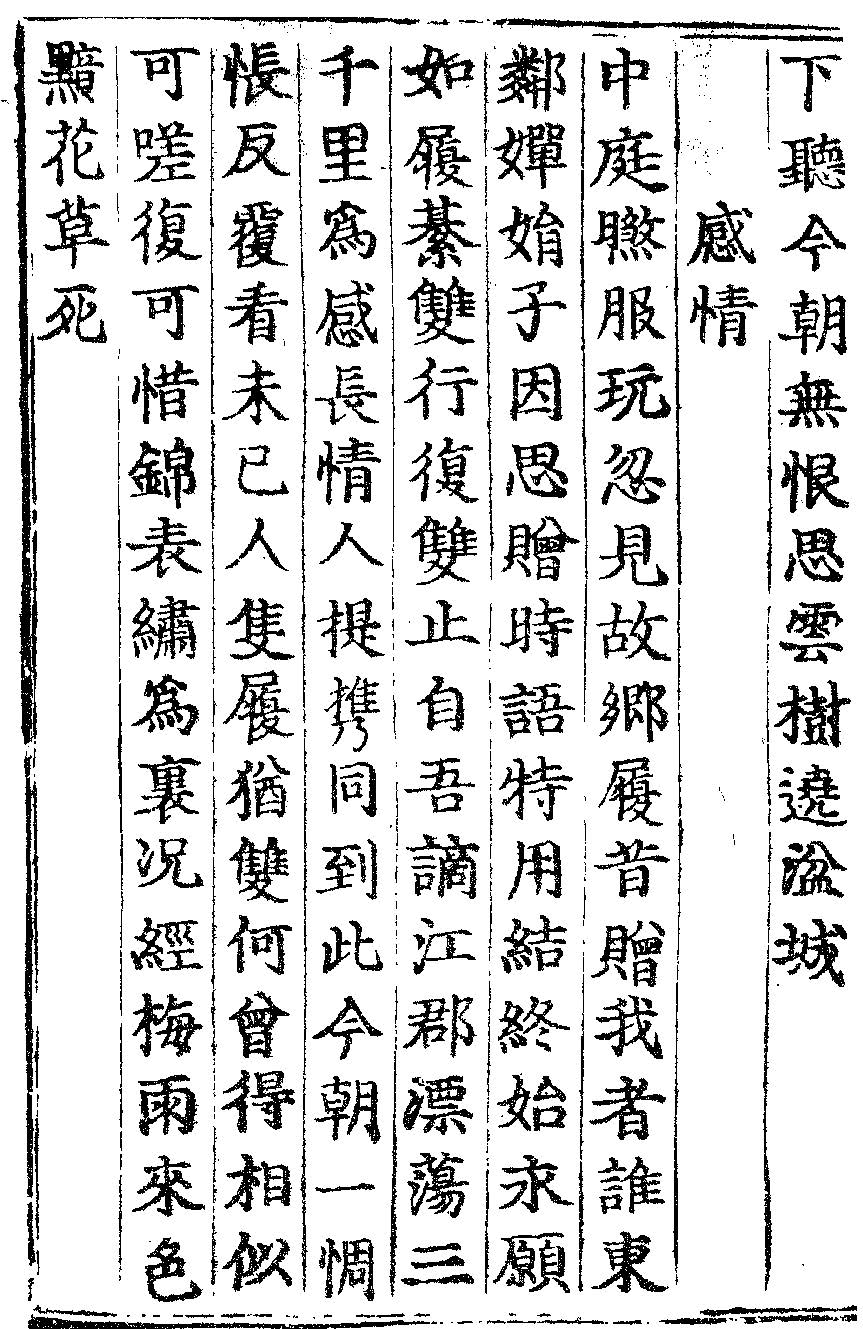 下聽今朝無恨思雲樹遶湓城
感情
中庭㬠服玩忽見故鄉履昔贈我者誰東
鄰嬋娟子因思贈時語特用結終始永願
如履綦雙行復雙止自吾謫江郡漂蕩三
千里爲感長情人提攜同到此今朝一惆
悵反覆看未已人隻履猶雙何曾得相似
可嗟復可惜錦表繡爲裏况經梅雨來色
黯花草死